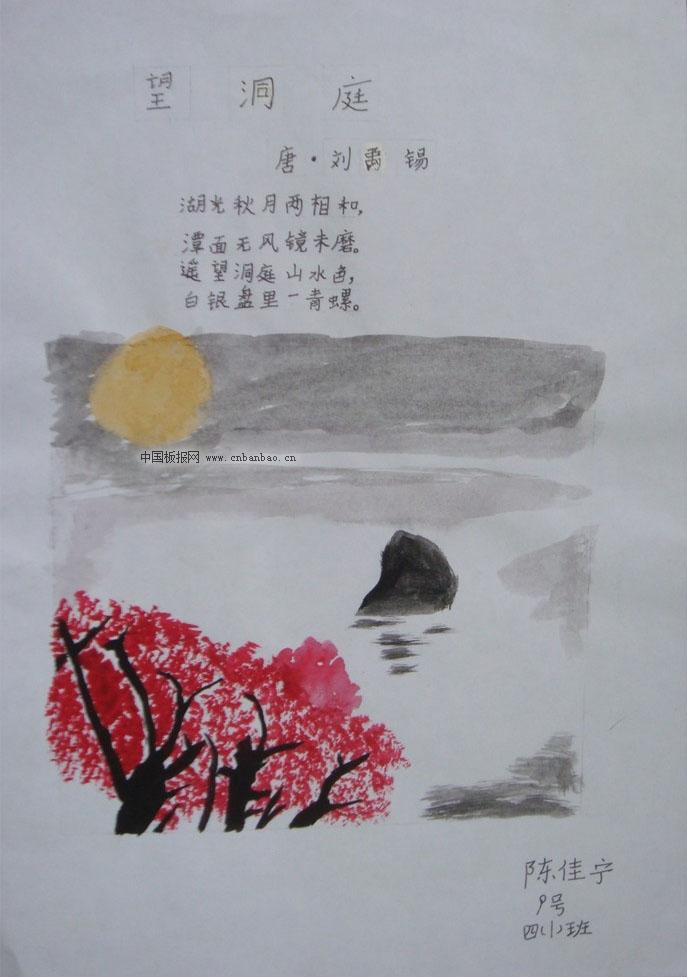 望洞庭
唐·刘禹锡
湖光秋月两相和,
潭面无风镜未磨。
遥望洞庭山水色,
白银盘里一青螺。
中国板报网 www.cnbanbao.cn
陈佳宁
9号
四(1)班